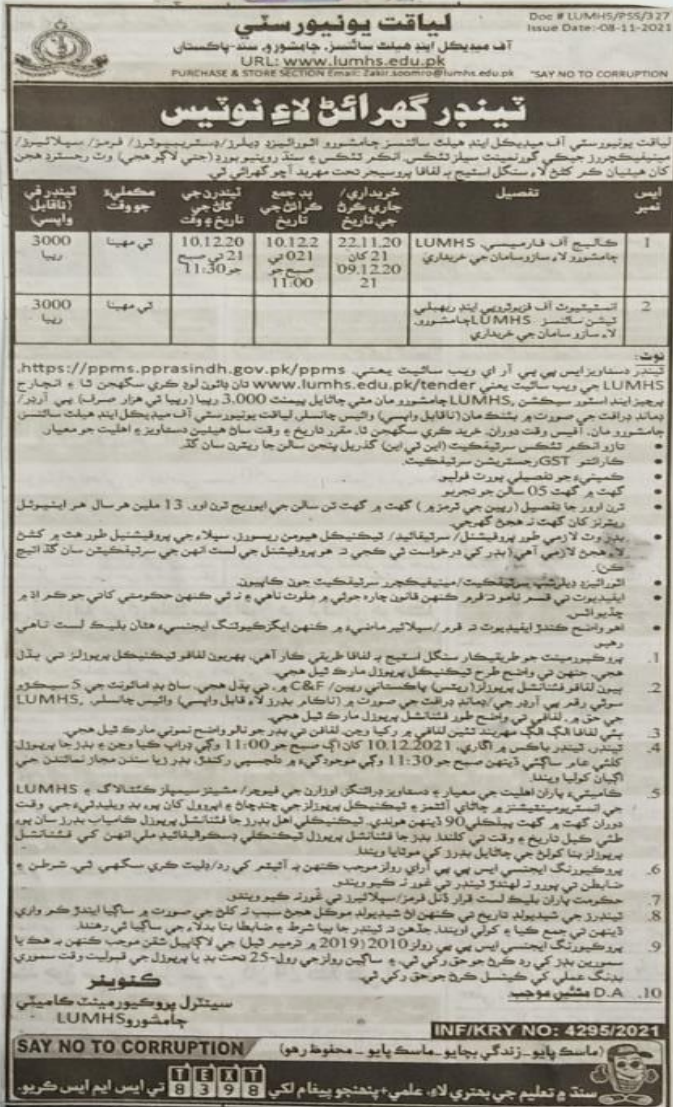 Doc # LUMHS/PSS/327
Issue Date:-08-11-2021
لياقت يونيورسٽي
آف ميڊيڪل اينڊ هيلٿ سائنسز، ڄامشورو، سنڌ-پاڪستان
URL: www.lumhs.edu.pk
PURCHASE & STORE SECTION Email: Zakir.soomro@lumhs.edu.pk "SAY NO TO CORRUPTION
ٽينڊر گهرائڻ لاءِ نوٽيس
لياقت يونيورسٽي آف ميڊيڪل اينڊ هيلٿ سائنسز ڄامشورو اٿورائيزڊ ڊيلرز/ڊسٽريبيوٽرز/ فرمز/ سپلائيرز/
مينيفيڪچررز جيڪي گورنمينٽ سيلز ٽيڪس، انڪم ٽيڪس ۽ سنڌ روينيو بورڊ (جتي لاڳو هجي) وٽ رجسٽرڊ هجن
کان هيٺيان ڪم ڪرڻ لاءِ سنگل اسٽيج ٻه لفافا پروسيجر تحت مهربند آڇون گهرائي ٿي.
ايس نمبر
تفصيل
خريداري/ جاري ڪرڻ جي تاريخ
بڊ جمع ڪرائڻ جي تاريخ
ٽينڊرن جي کلڻ جي تاريخ ۽ وقت
مڪمليءَ جو وقت
ٽينڊر في (ناقابل واپسي)
1
ڪاليج آف فارميسي، LUMHS
ڄامشورو لاءِ سازو سامان جي خريداري
22.11.20
21 کان
09.12.20
21
10.12.2
021 تي
صبح جو
11:00
10.12.20
21 تي صبح
جو 11:30
ٽي مهينا
3000
رپيا
2
انسٽيٽيوٽ آف فزيوٿراپي اينڊ ريهبلي
ٽيشن سائنسز LUMHS ڄامشورو
لاءِ سازو سامان جي خريداري
ٽي مهينا
3000
رپيا
نوٽ:
ٽينڊر دستاويز ايس پي پي آر اي ويب سائيٽ يعني، https://ppms.pprasindh.gov.pk/ppms،
LUMHS جي ويب سائيٽ يعني www.lumhs.edu.pk/tender تان ڊائون لوڊ ڪري سگهجن ٿا ۽ انچارج
پرچيز اينڊ اسٽور سيڪشن، LUMHS ڄامشورو مان مٿي ڄاڻايل پيمنٽ 3,000 رپيا (رپيا ٽي هزار صرف) پي آرڊر/
ڊمانڊ ڊرافٽ جي صورت ۾ بئنڪ مان (ناقابل واپسي) وائيس چانسلر لياقت يونيورسٽي آف ميڊيڪل اينڊ هيلٿ سائنسز،
ڄامشورو مان، آفيس وقت دوران، خريد ڪري سگهجن ٿا، مقرر تاريخ ۽ وقت سان هيٺين دستاويز ۽ اهليت جو معيار.
• تازو انڪم ٽيڪس سرٽيفڪيٽ (اين ٽي اين) گذريل پنجن سالن جا ريٽرن سان گڏ.
• ڪارائتو GST رجسٽريشن سرٽيفڪيٽ.
• ڪمپنيءَ جو تفصيلي پورٽ فوليو.
• گهٽ ۾ گهٽ 05 سالن جو تجربو
• ٽرن اوور جا تفصيل (رپين جي ٽرمز ۾) گهٽ ۾ گهٽ ٽن سالن جي ايوريج ٽرن اوور، 13 ملين هر سال هر اينيوئل
ريٽرنز کان گهٽ نه هجڻ گهرجي.
• بڊرز وٽ لازمي طور پروفيشنل/ سرٽيفائيڊ/ ٽيڪنيڪل هيومن ريسورز، سپلاءِ جي پروفيشنل طور هٿ ۾ کڻڻ
لاءِ هجڻ لازمي آهي (بڊرز کي درخواست ٿي ڪجي ته هو پروفيشنل جي لسٽ انهن جي سرٽيفڪيٽن سان گڏ اٽيچ
ڪن).
• اٿورائيزڊ ڊيلرشپ سرٽيفڪيٽ/مينيفيڪچرر سرٽيفڪيٽ جون ڪاپيون.
• ايفيڊيوٽ تي قسم نامو ته فرم ڪنهن قانون چاره جوئي ۾ ملوث ناهي ۽ نه ئي ڪنهن حڪومتي کاتي جو ڪم اڌ ۾
ڇڏيو اٿس.
• اهو واضح ڪندڙ ايفيڊيوٽ ته فرم/سپلائير ماضيءَ ۾ ڪنهن ايگزيڪيوٽنگ ايجنسيءَ هٿان بليڪ لسٽ ناهي
رهيو.
1. پروڪيورمينٽ جو طريقيڪار سنگل اسٽيج ٻه لفافا طريقي ڪار آهي، پهريون لفافو ٽيڪنيڪل پروپوزلز تي ٻڌل
هجي، جنهن تي واضح طرح ٽيڪنيڪل پروپوزل مارڪ ٿيل هجي.
2. ٻيون لفافو فنانشل پروپوزلز (ريٽس) پاڪستاني رپين/ C&F ۾، تي ٻڌل هجي، سان بڊ امائونٽ جي 5 سيڪڙو
سوٽي رقم پي آرڊر جي/ڊمانڊ ڊرافٽ جي صورت ۾ (ناڪام بڊرز لاءِ قابل واپسي) وائيس چانسلر، LUMHS
جي حق ۾، لفافي تي واضح طور فنانشل پروپوزل مارڪ ٿيل هجي.
3. ٻئي لفافا الڳ الڳ مهربند ٽئين لفافي ۾ رکيا وڃن، لفافن تي بڊر جو نالو واضح نموني مارڪ ٿيل هجي.
4. ٽينڊر، ٽينڊر باڪس ۾ اڱاري، 10.12.2021 کان اڳ صبح جو 11:00 وڳي ڊراپ ڪيا وڃن ۽ بڊز جا پروپوزل
کلئي عام ساڳئي ڏينهن صبح جو 11:30 وڳي موجودگيءَ ۾ دلچسپي رکندڙ، بڊرز يا سندن مجاز نمائندن جي
اڳيان کوليا ويندا.
5. ڪاميٽيءَ پاران اهليت جي معيار ۽ دستاويز ڊرائنگز اوزارن جي فيوچر/ مشينز سيمپلز ڪئٽالاگ ۽ LUMHS
جي انسٽرومينٽيشنز ۾ ڄاڻايل آئٽمز ۽ ٽيڪنيڪل پروپوزلز جي ڇنڊڇاڻ ۽ اپروول کان پوءِ بڊ ويلڊيٽيءَ جي وقت
دوران گهٽ ۾ گهٽ پهلڪي 90 ڏينهن هوندي، ٽيڪنيڪلي اهل بڊرز جا فنانشل پروپوزل ڪامياب بڊرز سان پوءِ
طئي ڪيل تاريخ ۽ وقت تي کلندا، بڊرز جا فنانشل پروپوزل ٽيڪنيڪلي ڊسڪواليفائيڊ ملي انهن کي فنانشل
پروپوزلز بنا کولڻ جي ڄاڻايل بڊرز کي موٽايا ويندا.
6. پروڪيورنگ ايجنسي ايس پي پي آر اي رولز موجب ڪنهن به آئيٽم کي رد/ڊليٽ ڪري سگهي ٿي. شرطن ۽
ضابطن تي پورو نه لهندڙ ٽينڊر تي غور نه ڪيو ويندو.
7. حڪومت پاران بليڪ لسٽ قرار ڏنل فرمز/سپلائيرز تي غور نه ڪيو ويندو.
8. ٽينڊرز جي شيڊيولڊ تاريخ تي ڪنهن اڻ شيڊيولڊ موڪل هجڻ سبب نه کلڻ جي صورت ۾ ساڳيا ايندڙ ڪم واري
ڏينهن تي جمع ڪيا ۽ کوليا ويندا، جڏهن ته ٽينڊرز جا ٻيا شرط ۽ ضابطا بنا بدلاءَ جي ساڳيا ئي رهندا.
9. پروڪيورنگ ايجنسي ايس پي پي رولز 2010 (2019 ۾ ترميم ٿيل) جي لاڳاپيل شقن موجب ڪنهن به هڪ يا
سمورين بڊز کي رد ڪرڻ جو حق رکي ٿي. ۽ ساڳين رولز جي رول-25 تحت بڊ يا پروپوزل جي قبوليت وقت سموري
بڊنگ عملي کي ڪينسل ڪرڻ جو حق رکي ٿي.
10. D.A مٿئين موجب
ڪنوينر
سينٽرل پروڪيورمينٽ ڪاميٽي
LUMHS ڄامشورو
INF/KRY NO: 4295/2021
SAY NO TO CORRUPTION
(ماسڪ پايو - زندگي بچايو - ماسڪ پايو - محفوظ رهو)
سنڌ ۾ تعليم جي بهتري لاءِ، علمي+پنهنجو پيغام لکي TEXT 8398 تي ايس ايم ايس ڪريو.